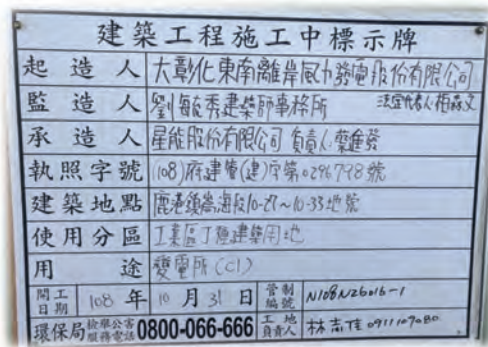 建築工程施工中標示牌
起造人 大彰化東南離岸風力發電股份有限公司
監造人 劉敏秀建築師事務所 法定代表人:柏森文
承造人 星能股份有限公司 負責人:蔡進發
執照字號 (108)府建管(建)字第0296798號
建築地點 鹿港鎮崙海段10-27~10-33地號
使用分區 工業區丁種建築用地
用途 變電所(C1)
開工日期 108年10月31日 管制編號 N108N26016-1
環保局 檢舉公害服務電話 0800-066-666 工地負責人 林志佳 0911107080